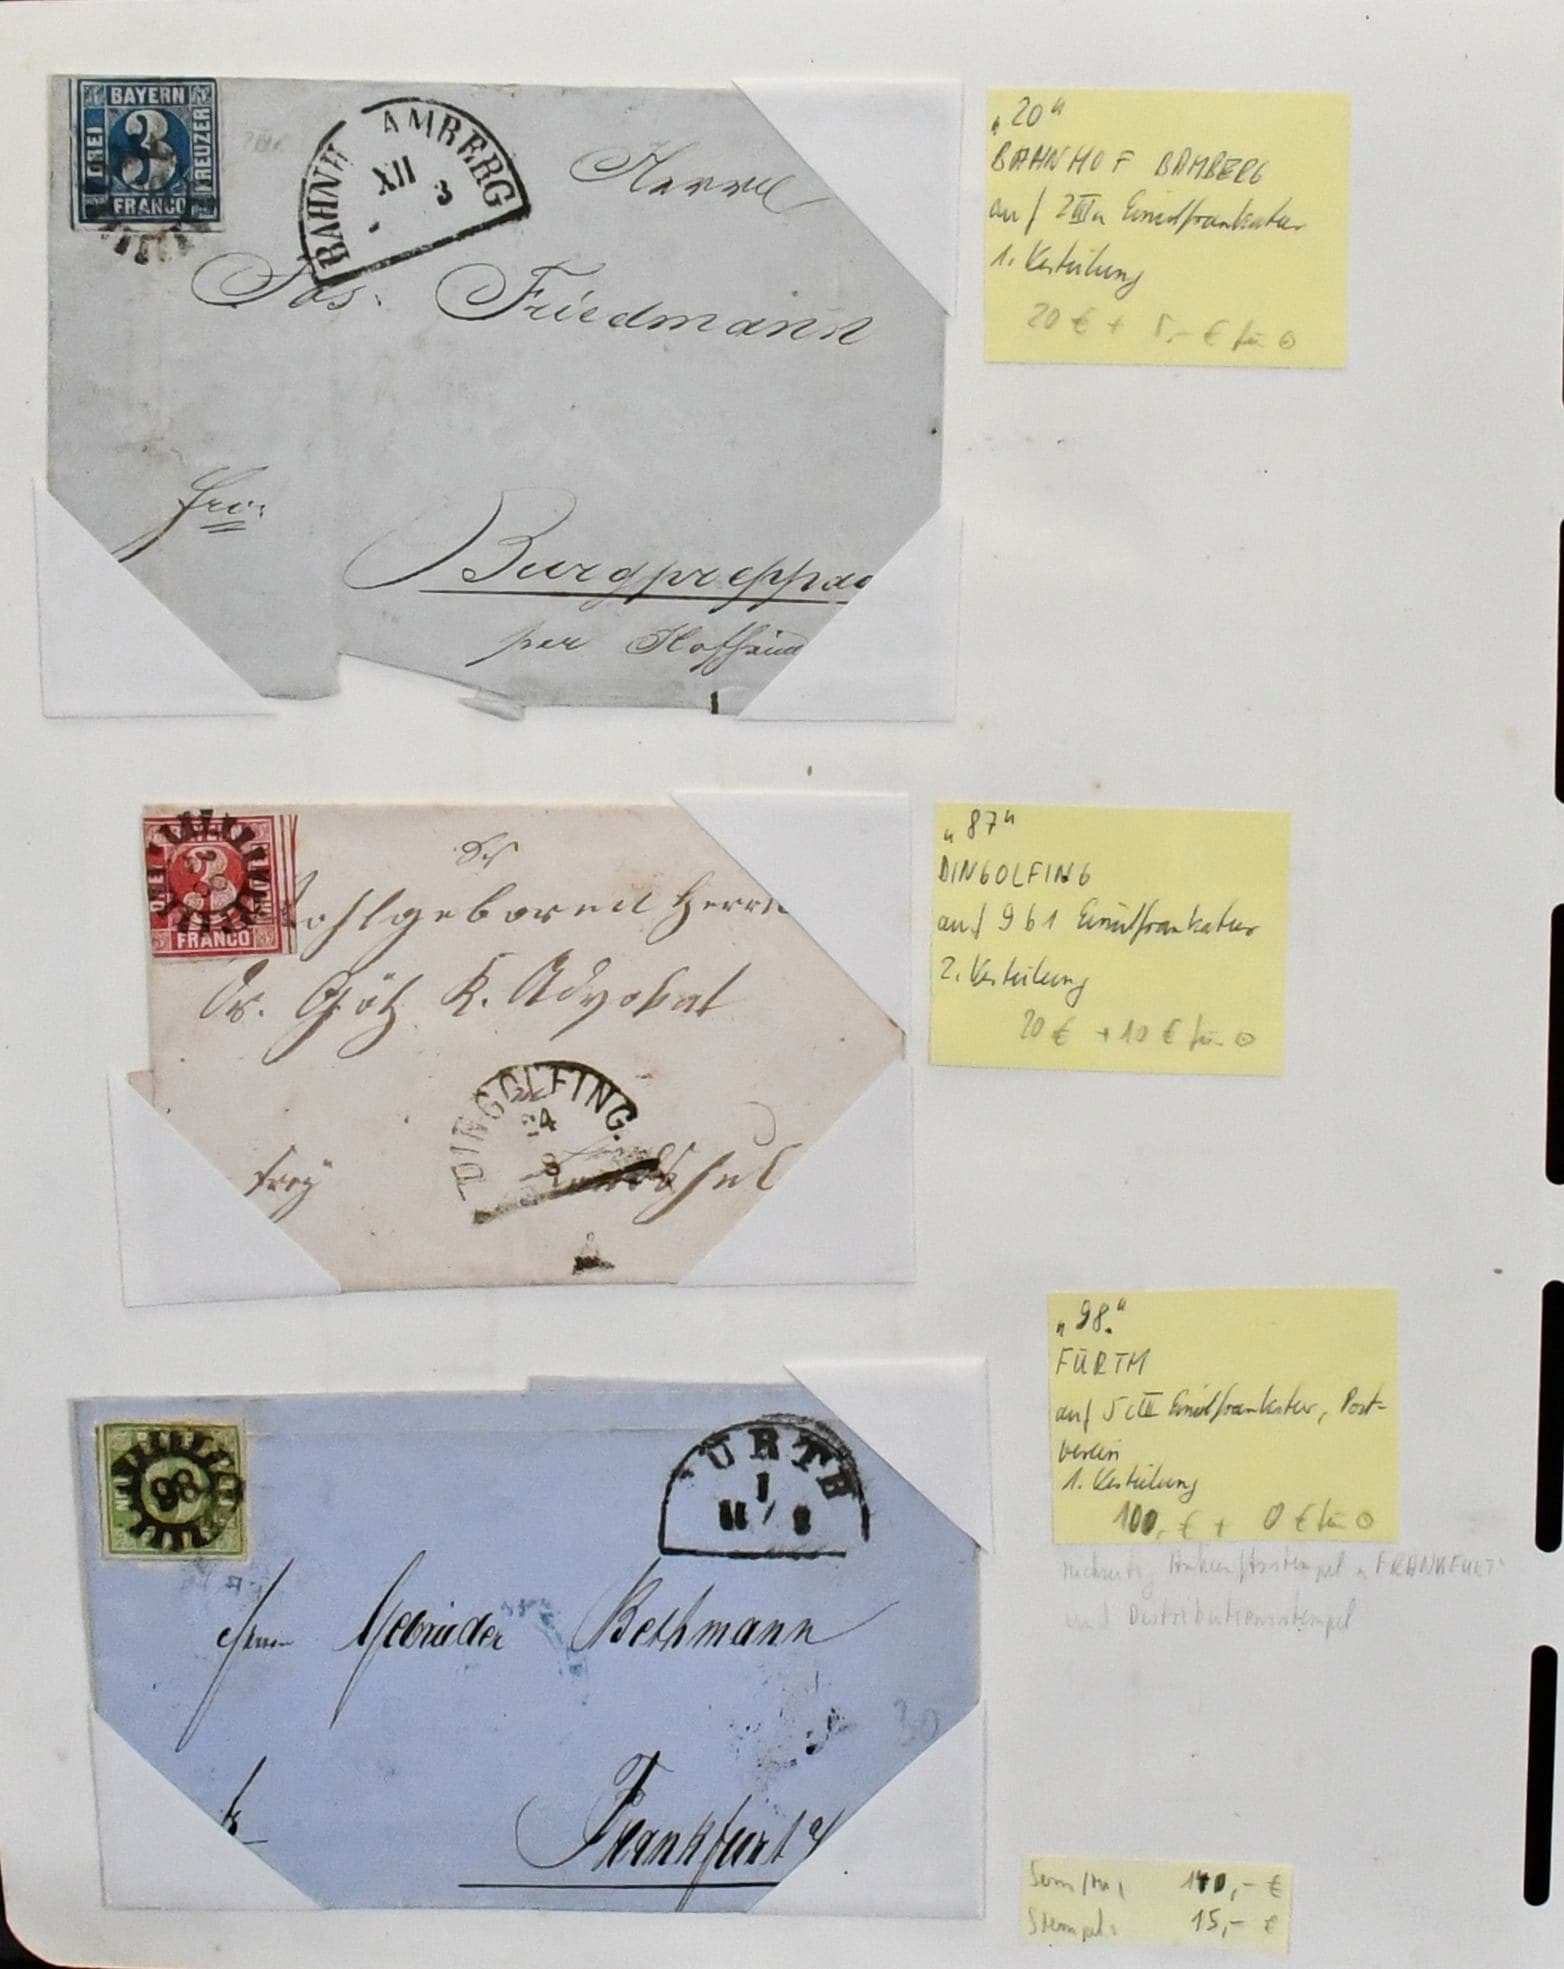 BAYERN
DREI
3
KREUZER
FRANCO
BAHNH AMBERG
XII 3
Herrn
Jos: Friedmann
fro:
Burgpreppac
per Hofheim
„20"
BAHNHOF BAMBERG
auf 2II Einzelfrankatur
1. Verteilung
20 € + 5,- € für
3
FRANCO
Wohlgeboren Herrn
Dr. Götz K. Advokat
DINGOLFING.
24
frey
Landshut
„87"
DINGOLFING
auf 9b1 Einzelfrankatur
2. Verteilung
20 € + 10 € für
98
ÜRTH
1
11 / 8
Herrn Gebrüder Bethmann
30
Frankfurt a/
„98."
FÜRTH
auf 5cII Einzelfrankatur, Post-
verein
1. Verteilung
100,- € + 0 € für
rückseitig Ankunftsstempel „FRANKFURT"
und Distributionsstempel
140,- €
Stempel: 15,- €